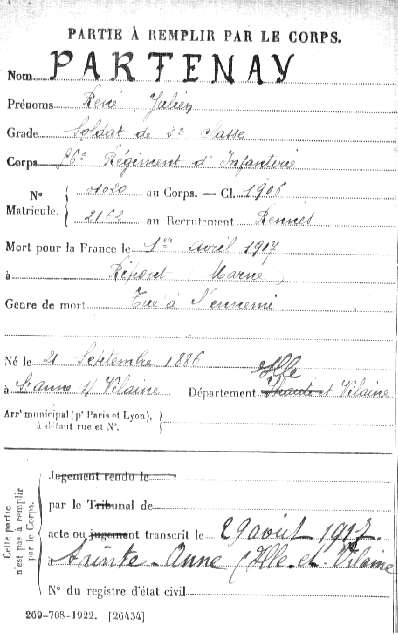 PARTIE À REMPLIR PAR LE CORPS.
Nom PARTENAY
Prénoms René Julien
Grade Soldat de 2e Classe
Corps Régiment d'Infanterie
Nº au Corps. — Cl. 1906
Matricule. au Recrutement Rennes
Mort pour la France le 1er Avril 1917
à Marne
Genre de mort Tué à l'ennemi
Né le 21 Septembre 1886
à s/ Vilaine Département Ille et Vilaine
Arrt municipal (pr Paris et Lyon),
à défaut rue et Nº.
Cette partie
n'est pas à remplir
par le Corps.
Jugement rendu le
par le Tribunal de
acte ou jugement transcrit le 29 août 1917
Sainte-Anne (Ille-et-Vilaine
Nº du registre d'état civil
269-708-1922. [26434]